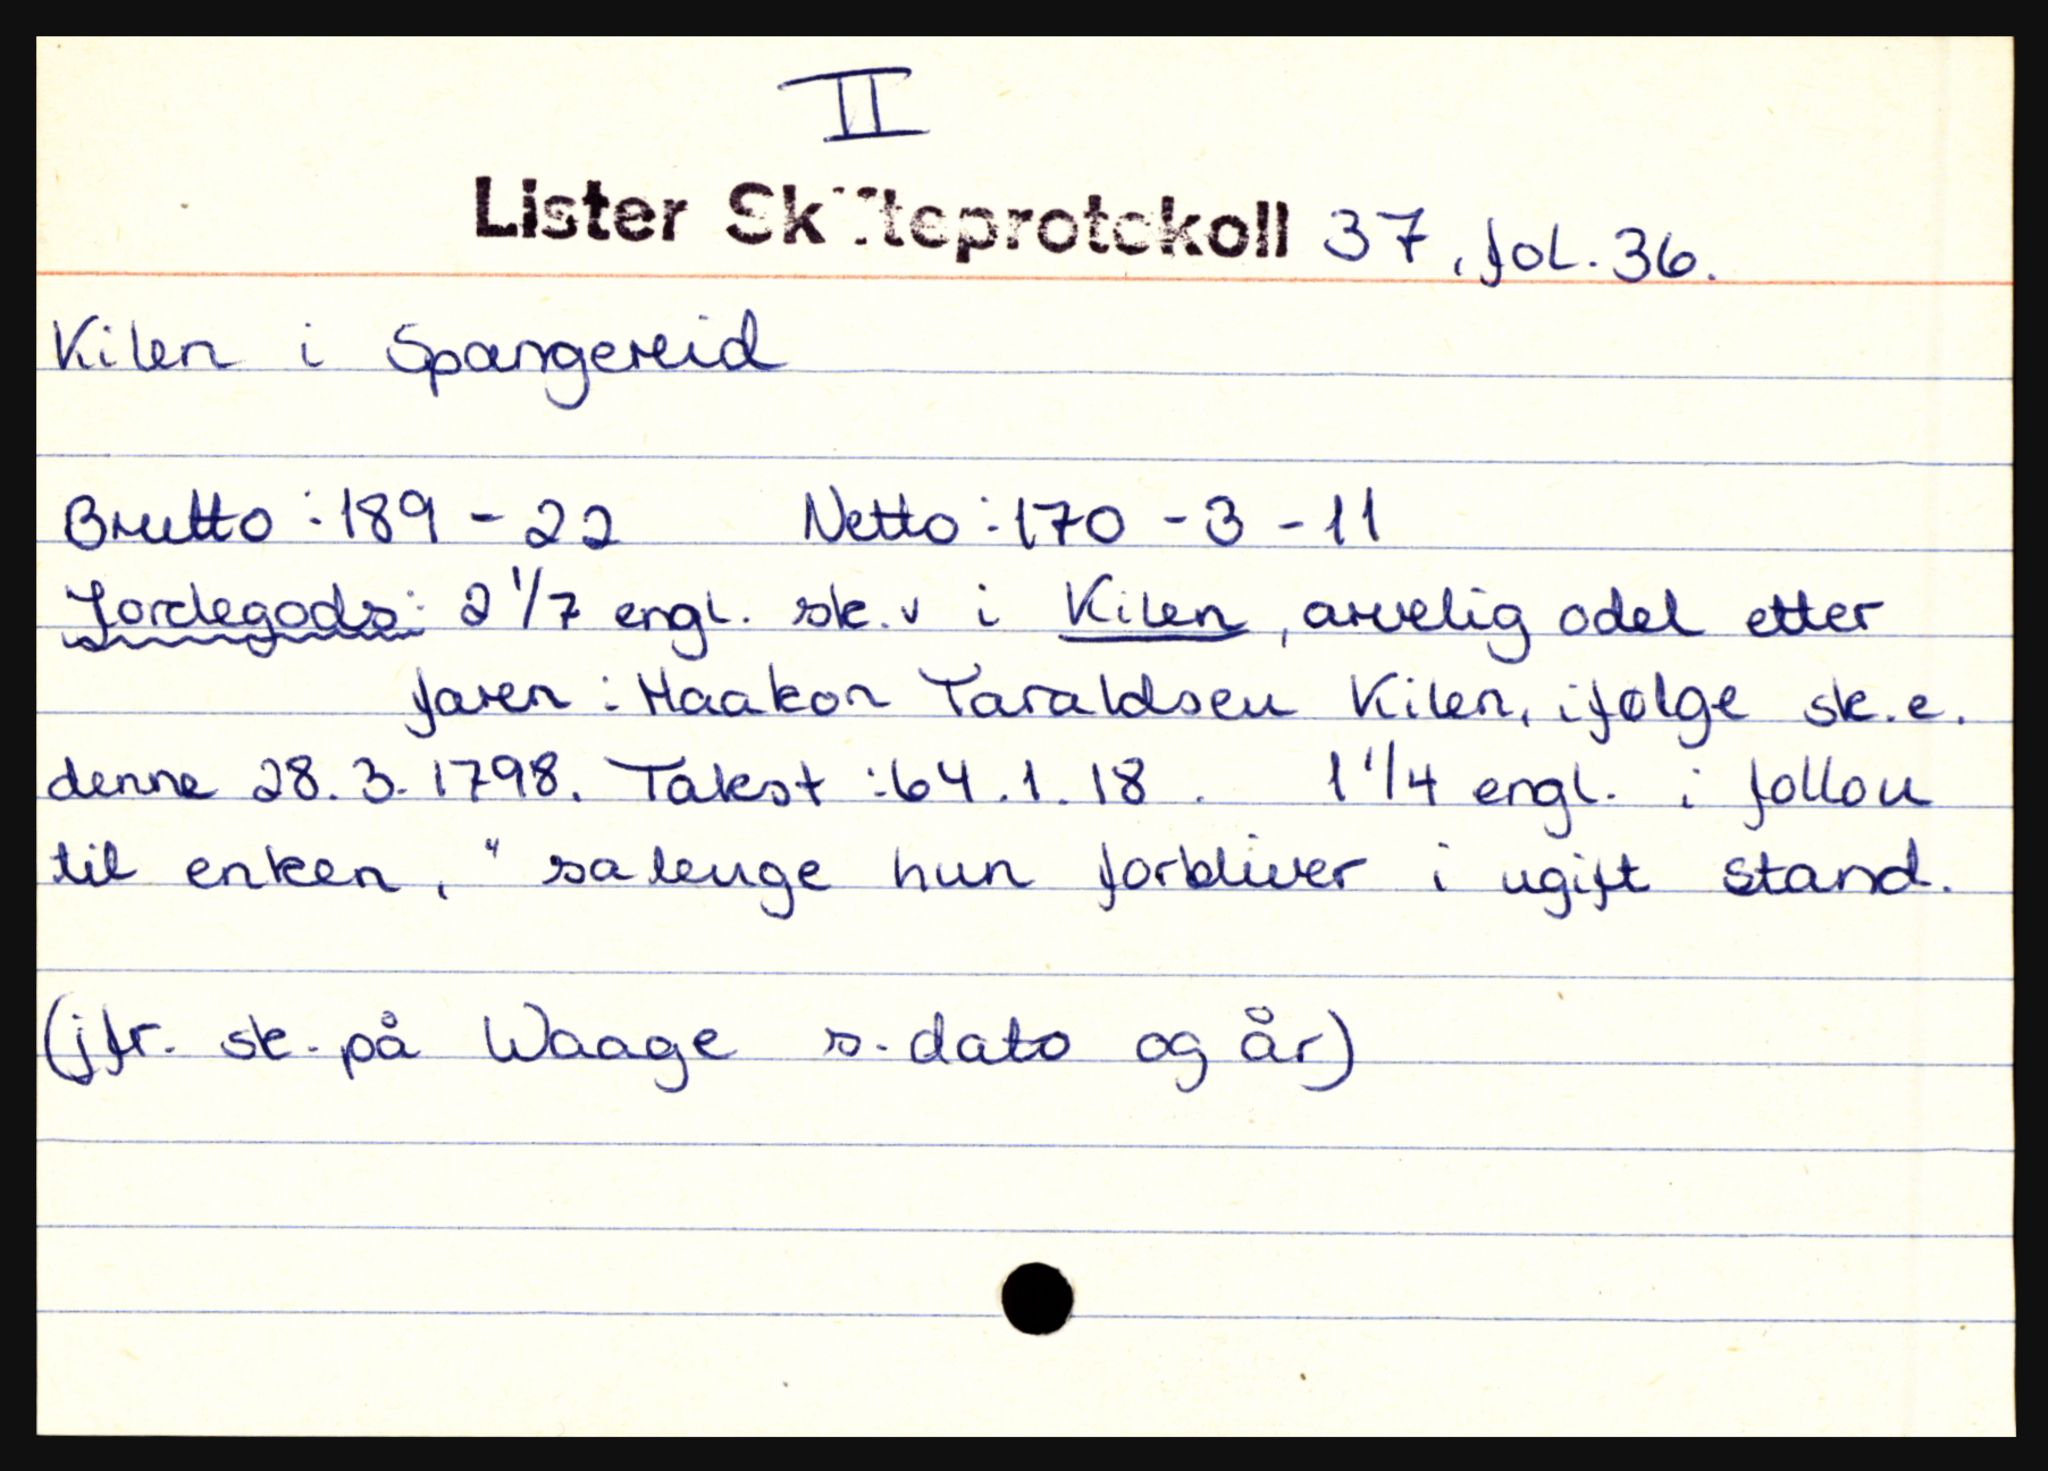 II
Lister Skifteprotokoll 37, fol. 36.
Kilen i Spangereid
Brutto: 189 - 22 Netto: 170 - 3 - 11
Jordegods: 2 1/7 engl. sk.v i Kilen, arvelig odel etter
faren: Haakon Taraldsen Kilen, ifølge sk.e.
denne 28.3.1798. Takst: 64.1.18. 1 1/4 engl. i follou
til enken, "sa lenge hun forbliver i ugift stand.
(jfr. sk. på Waage s. dato og år)